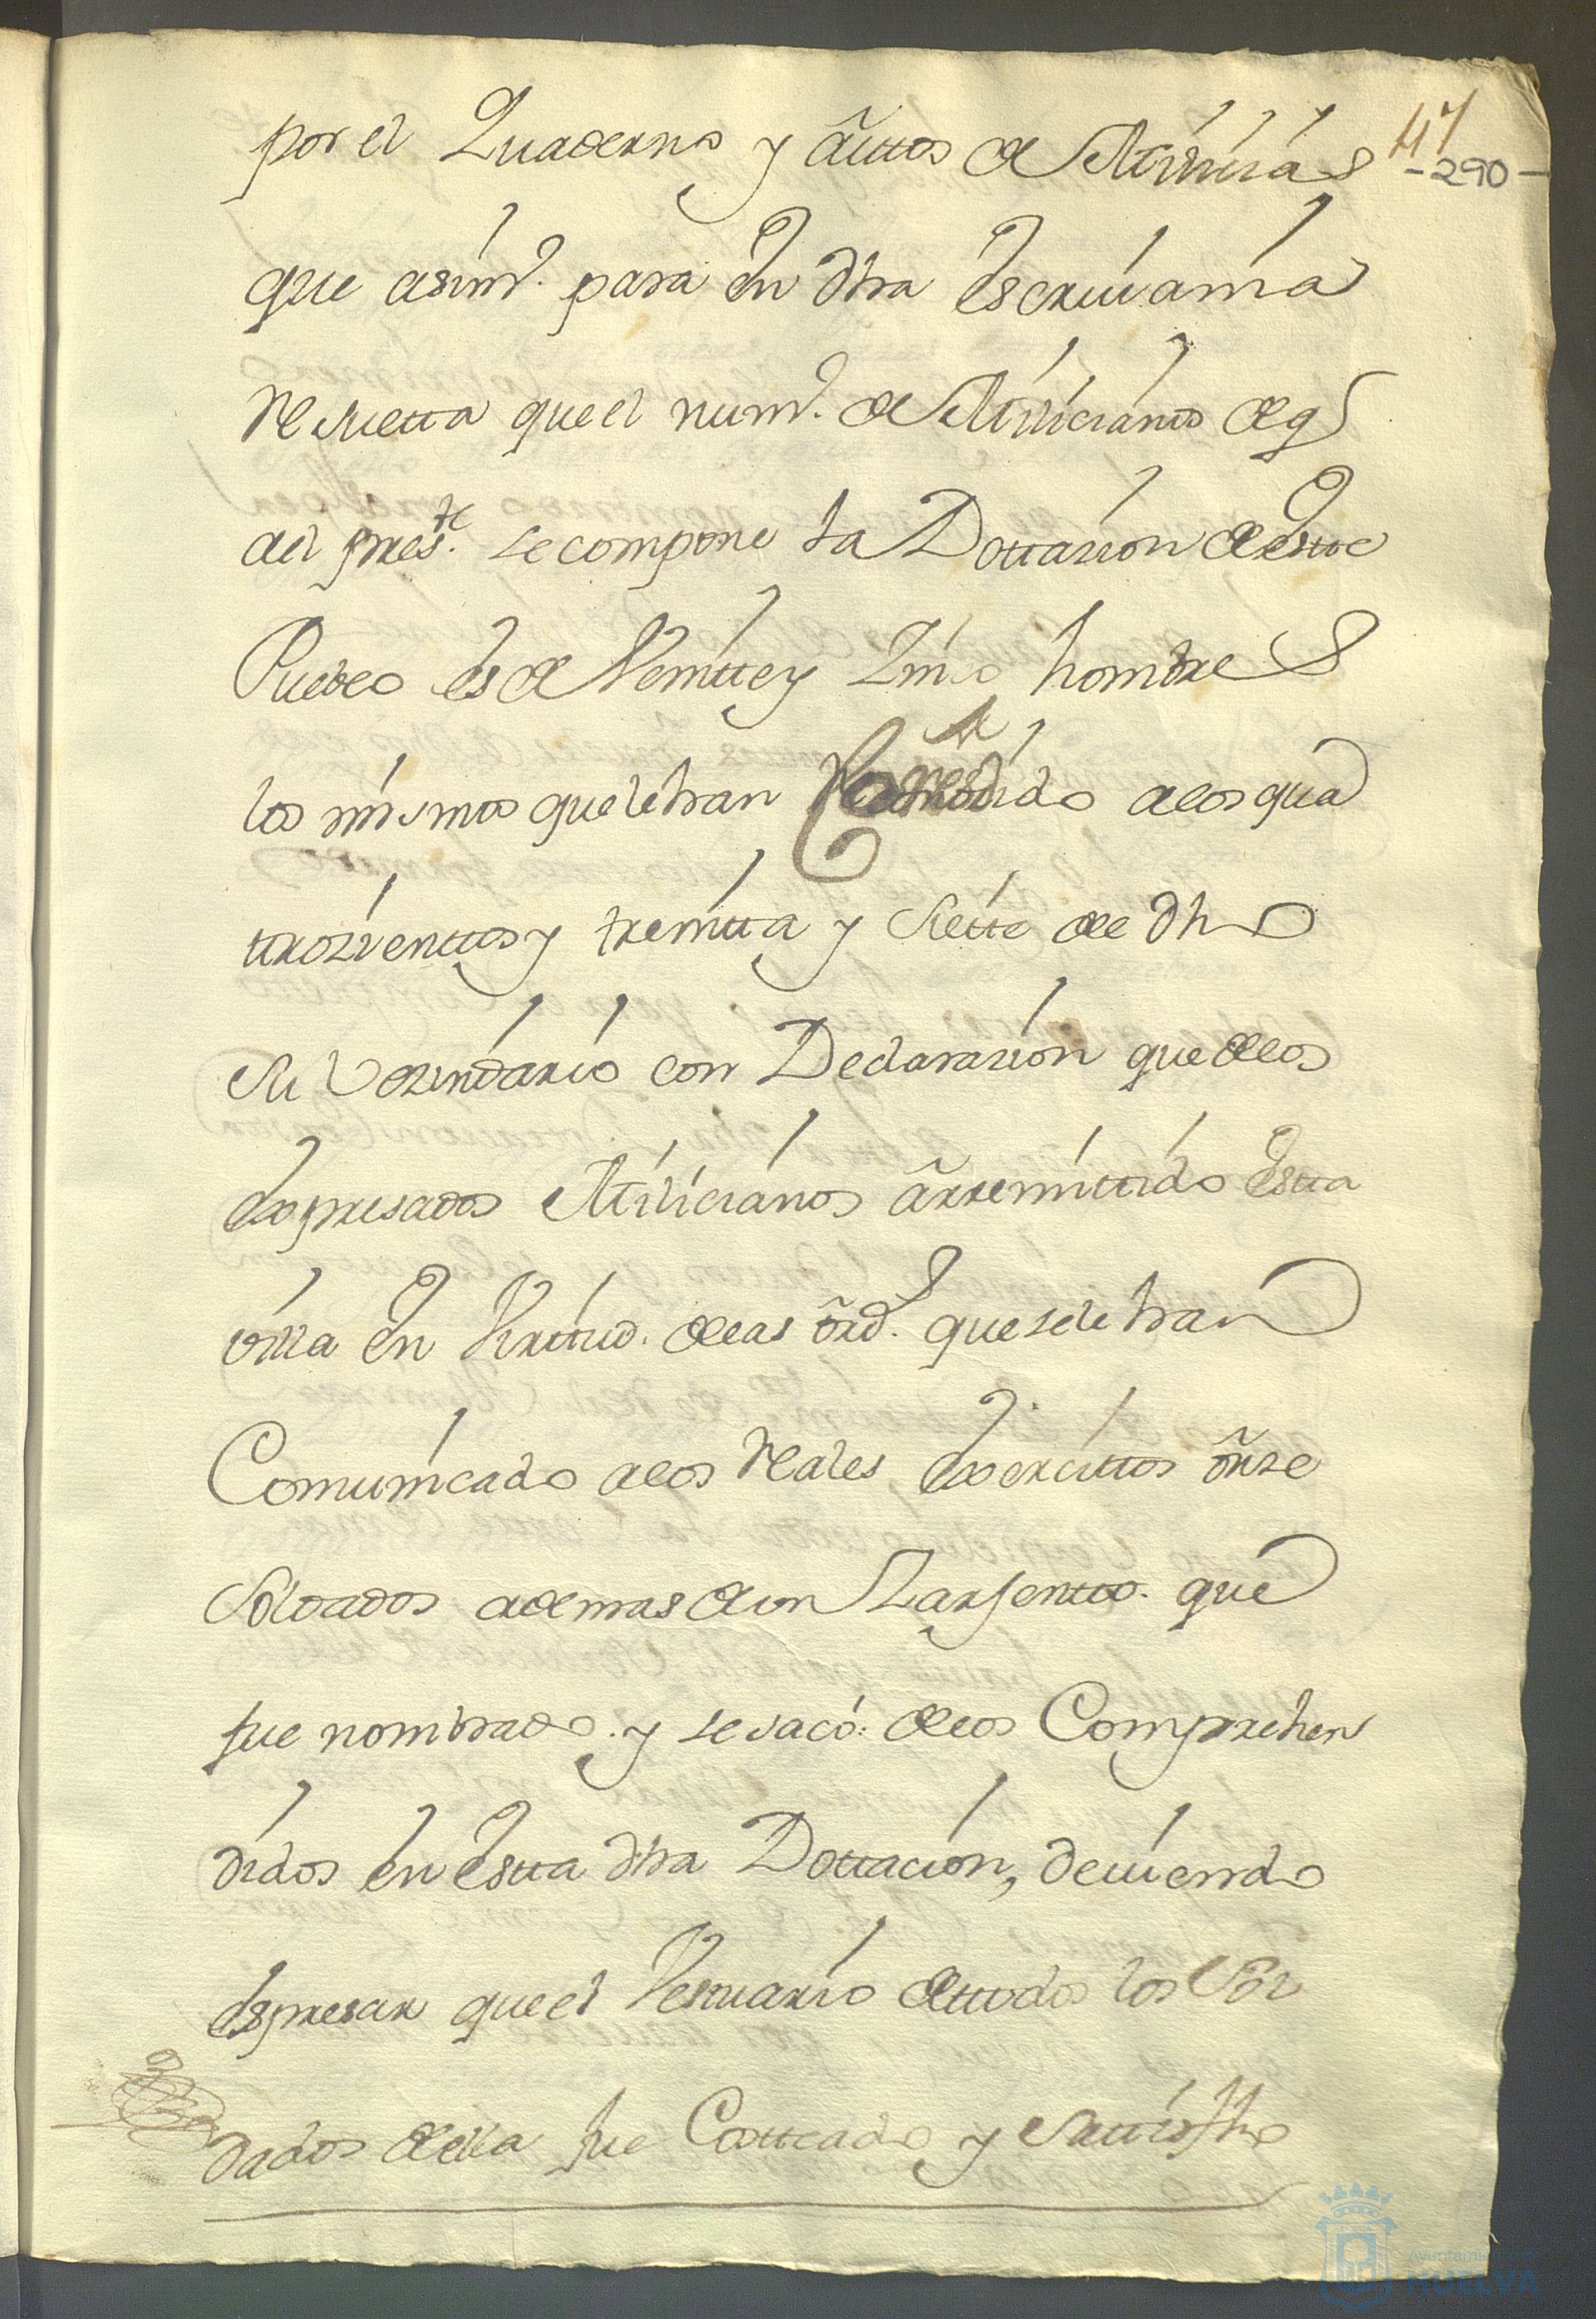 por el Quaderno y autos de Milicias
47
-290-
que asimº. para en dha escriuania
Resuetta que el numº. de Milicianos de q
al presᵗᵉ. se compone la Dottazion de este
Pueblo es de Veintte y Zinco hombres
los mismos que le han Correspondido a los qua
trozienttos y treintta y siette de dho
su Vezindario con Declarazion que de los
expresados Milicianos a rremittido estta
villa en Virttud. de las ordˢ. que se le han
Comunicado a los Reales exercittos onze
soldados ademas de un Zarjentto. que
fue nombrado. y se sacó: de los Comprehen
didos en estta dha Dottacion, deuiendo
espresar que el Vestuario de ttodos los Sol
dados de ella fue Costteado y Sattisfho
Ayuntamiento de
HUELVA